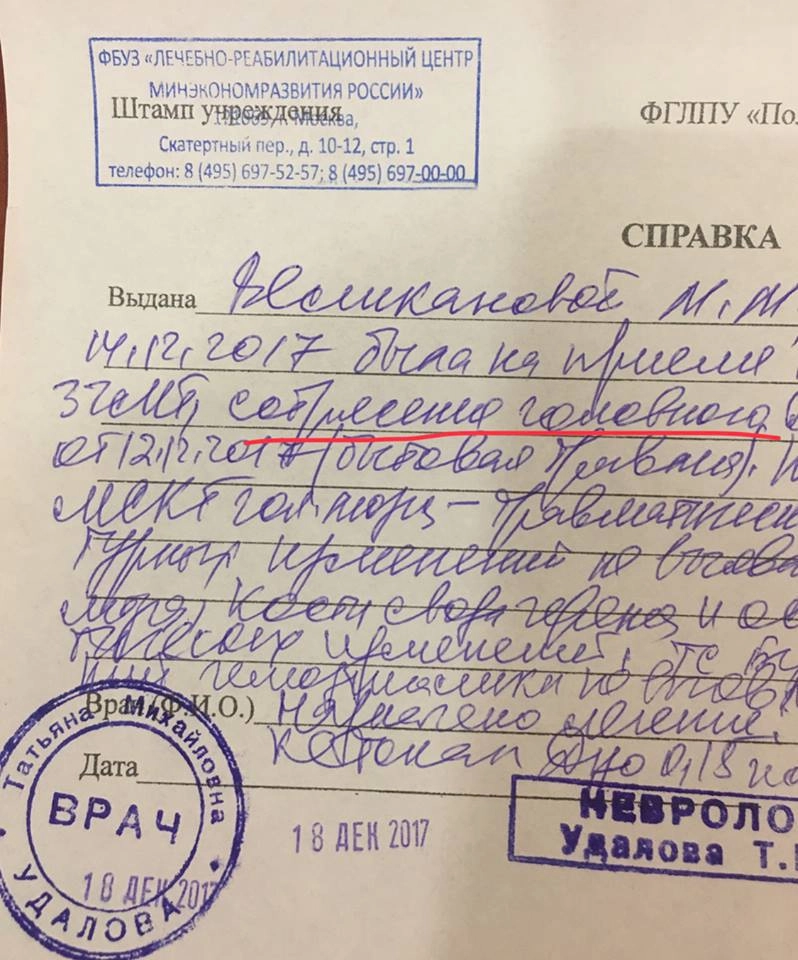 ФБУЗ «ЛЕЧЕБНО-РЕАБИЛИТАЦИОННЫЙ ЦЕНТР
МИНЭКОНОМРАЗВИТИЯ РОССИИ»
Штамп учреждения
Москва,
Скатертный пер., д. 10-12, стр. 1
телефон: 8 (495) 697-52-57; 8 (495) 697-00-00
ФГЛПУ «Пол
СПРАВКА
Выдана Великановой М.М
14.12.2017 была на приеме
ЗЧМТ, сотрясение головного
от 12.12.2017 (бытовая травма).
МСКТ гол. мозга – травматическ
турных изменений не выявл
мозга. Кости свода черепа и ос
изменений.
Врач (Ф.И.О.) Назначено лечение:
Кетонал Дуо
Дата
18 ДЕК 2017
Татьяна Михайловна
ВРАЧ
18 ДЕК 2017
УДАЛОВА
НЕВРОЛО
Удалова Т.